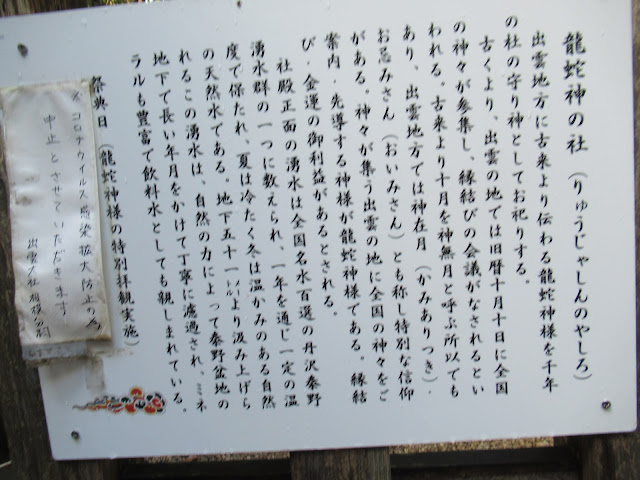 龍蛇神の社 (りゅうじゃしんのやしろ)
出雲地方に古来より伝わる龍蛇神様を千年
の杜の守り神としてお祀りする。
古くより、出雲の地では旧暦十月十日に全国
の神々が参集し、縁結びの会議がなされるとい
われる。古来より十月を神無月と呼ぶ所以でも
あり、出雲地方では神在月 (かみありつき)・
お忌みさん (おいみさん) とも称し特別な信仰
がある。神々が集う出雲の地に全国の神々をご
案内・先導する神様が龍蛇神様である。縁結
び・金運の御利益があるとされる。
社殿正面の湧水は全国名水百選の丹沢秦野
湧水群の一つに数えられ、一年を通じ一定の温
度で保たれ、夏は冷たく冬は温かみのある自然
の天然水である。地下五十一㍍より汲み上げら
れるこの湧水は、自然の力によって秦野盆地の
地下で長い年月をかけて丁寧に濾過され、ミネ
ラルも豊富で飲料水としても親しまれている。
祭典日 (龍蛇神様の特別拝観実施)
※コロナウイルス感染拡大防止の為
中止とさせていただきます
出雲大社相模分祠